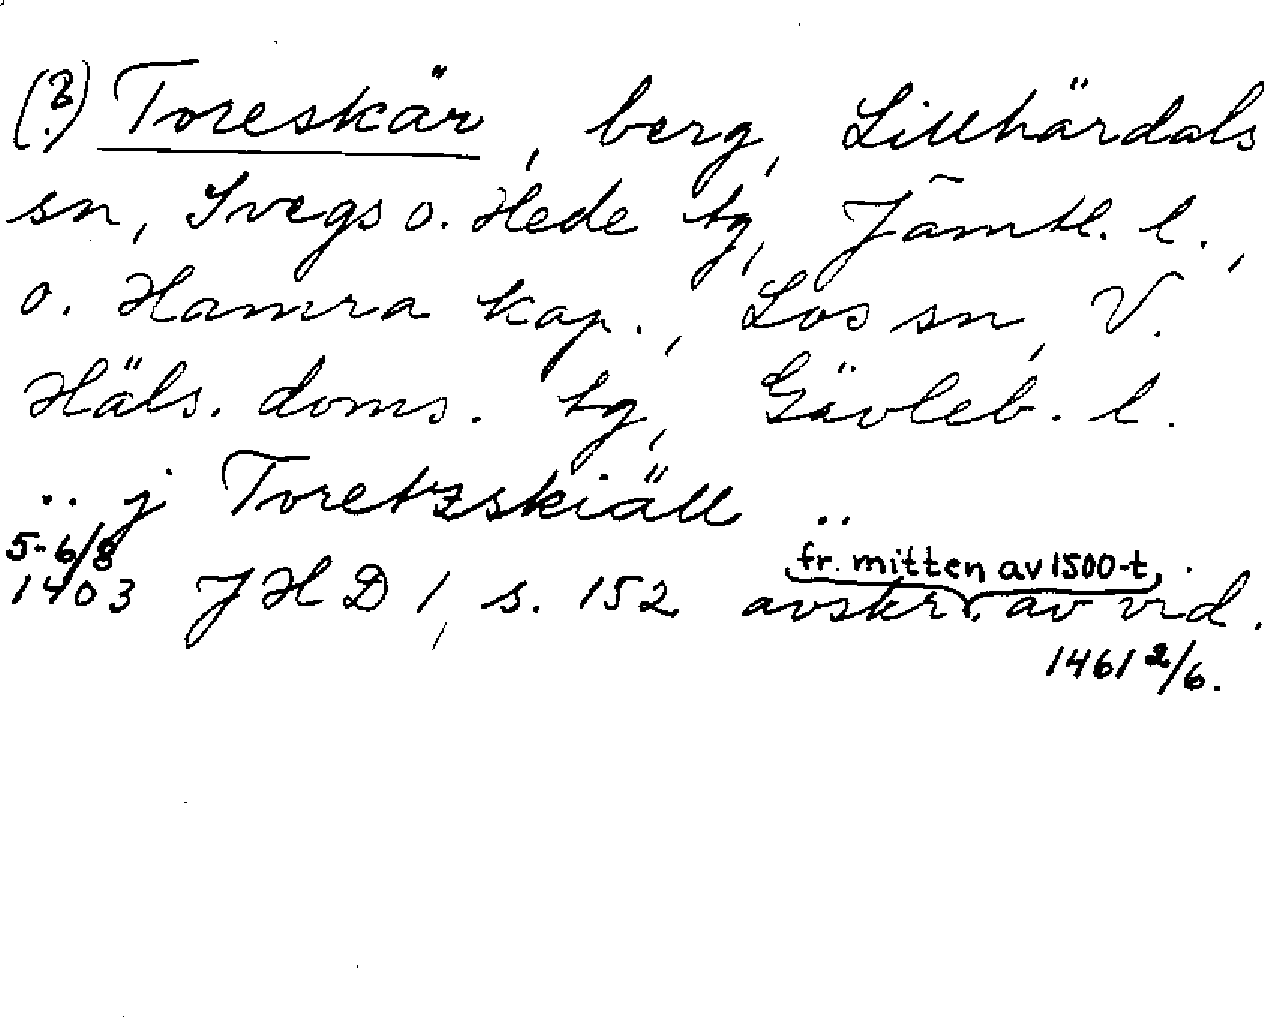 (?) Toreskär, berg, Lillhärdals
sn, Svegs o. Hede tg, Jämtl. l.,
o. Hamra kap., Los sn, V.
Häls. doms. tg, Gävleb. l.
.. j Toretzskiäll ..
5-6/8
fr. mitten av 1500-t.
1403 JHD 1, s. 152 avskr. av vid.
1461 2/6.